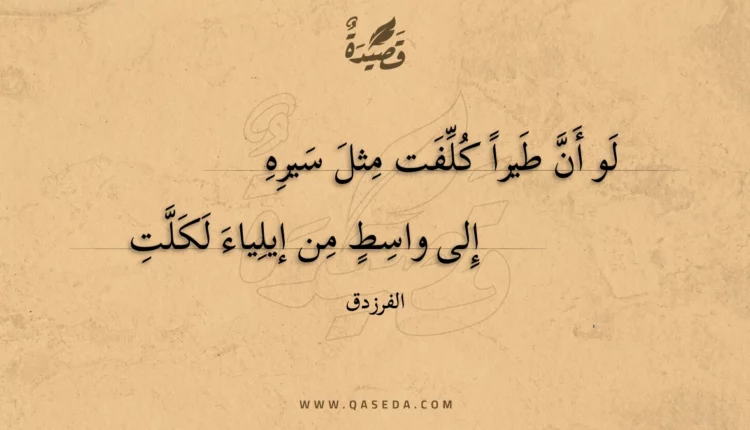 قَصِيدَةٌ
لَو أَنَّ طَيراً كُلِّفَت مِثلَ سَيرِهِ
إِلى واسِطٍ مِن إيلِياءَ لَكَلَّتِ
الفرزدق
WWW.QASEDA.COM